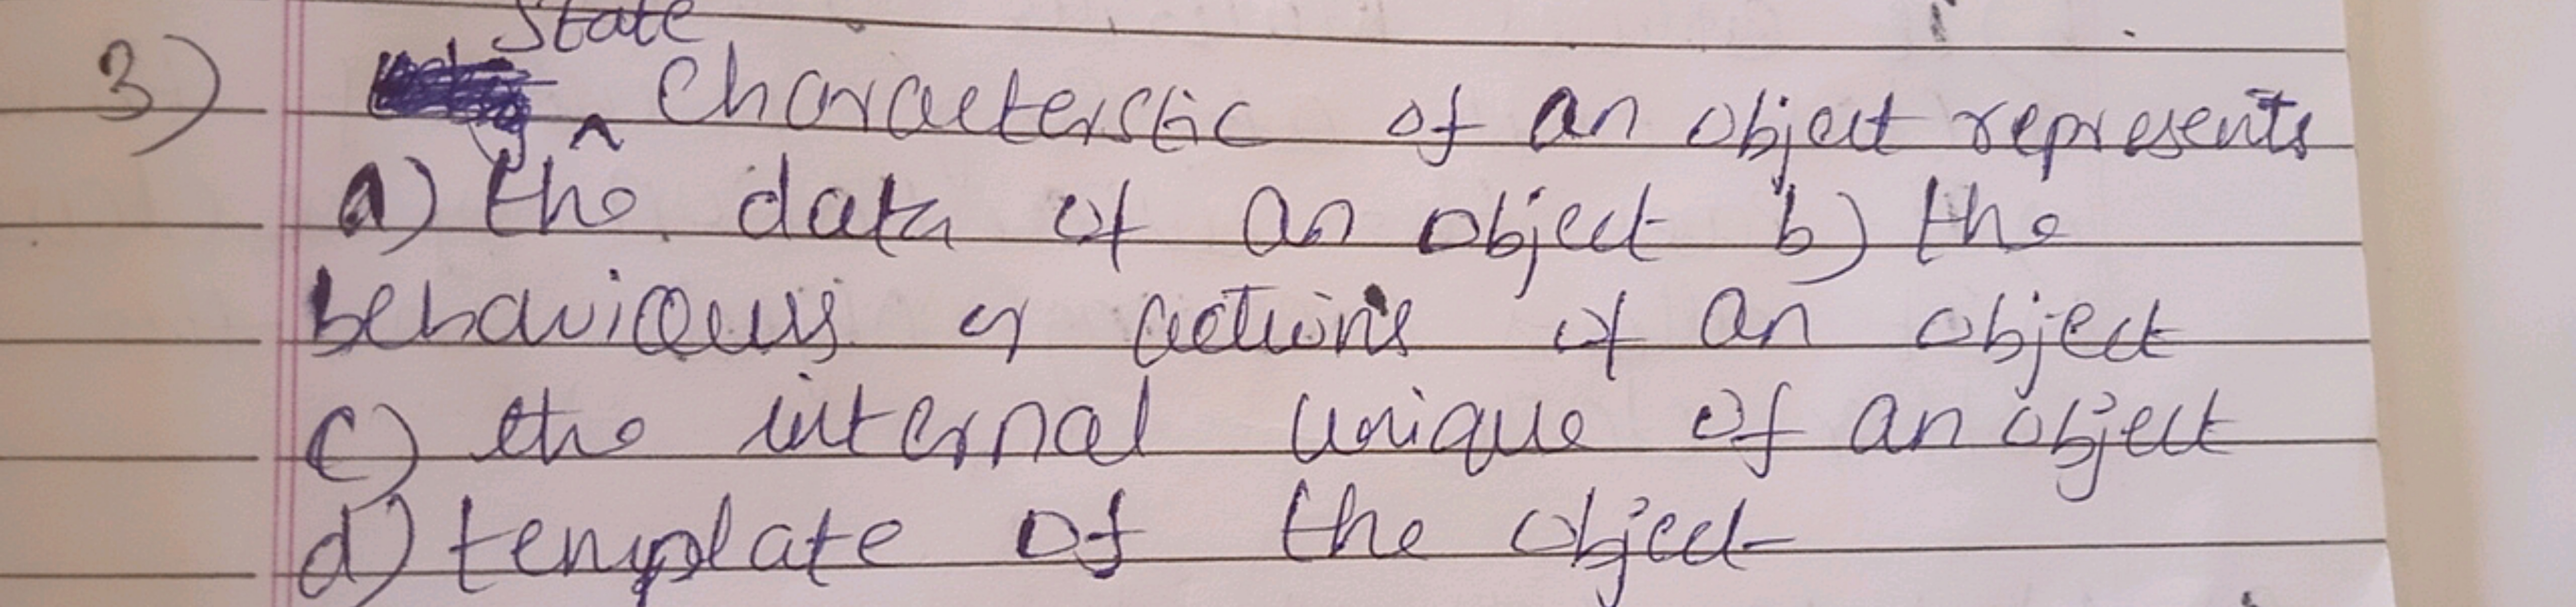 State
3) Characterstic of an object represents
a) the data of an object b) the
behaviours or actions of an object
c) the internal unique of an object
d) template of the object